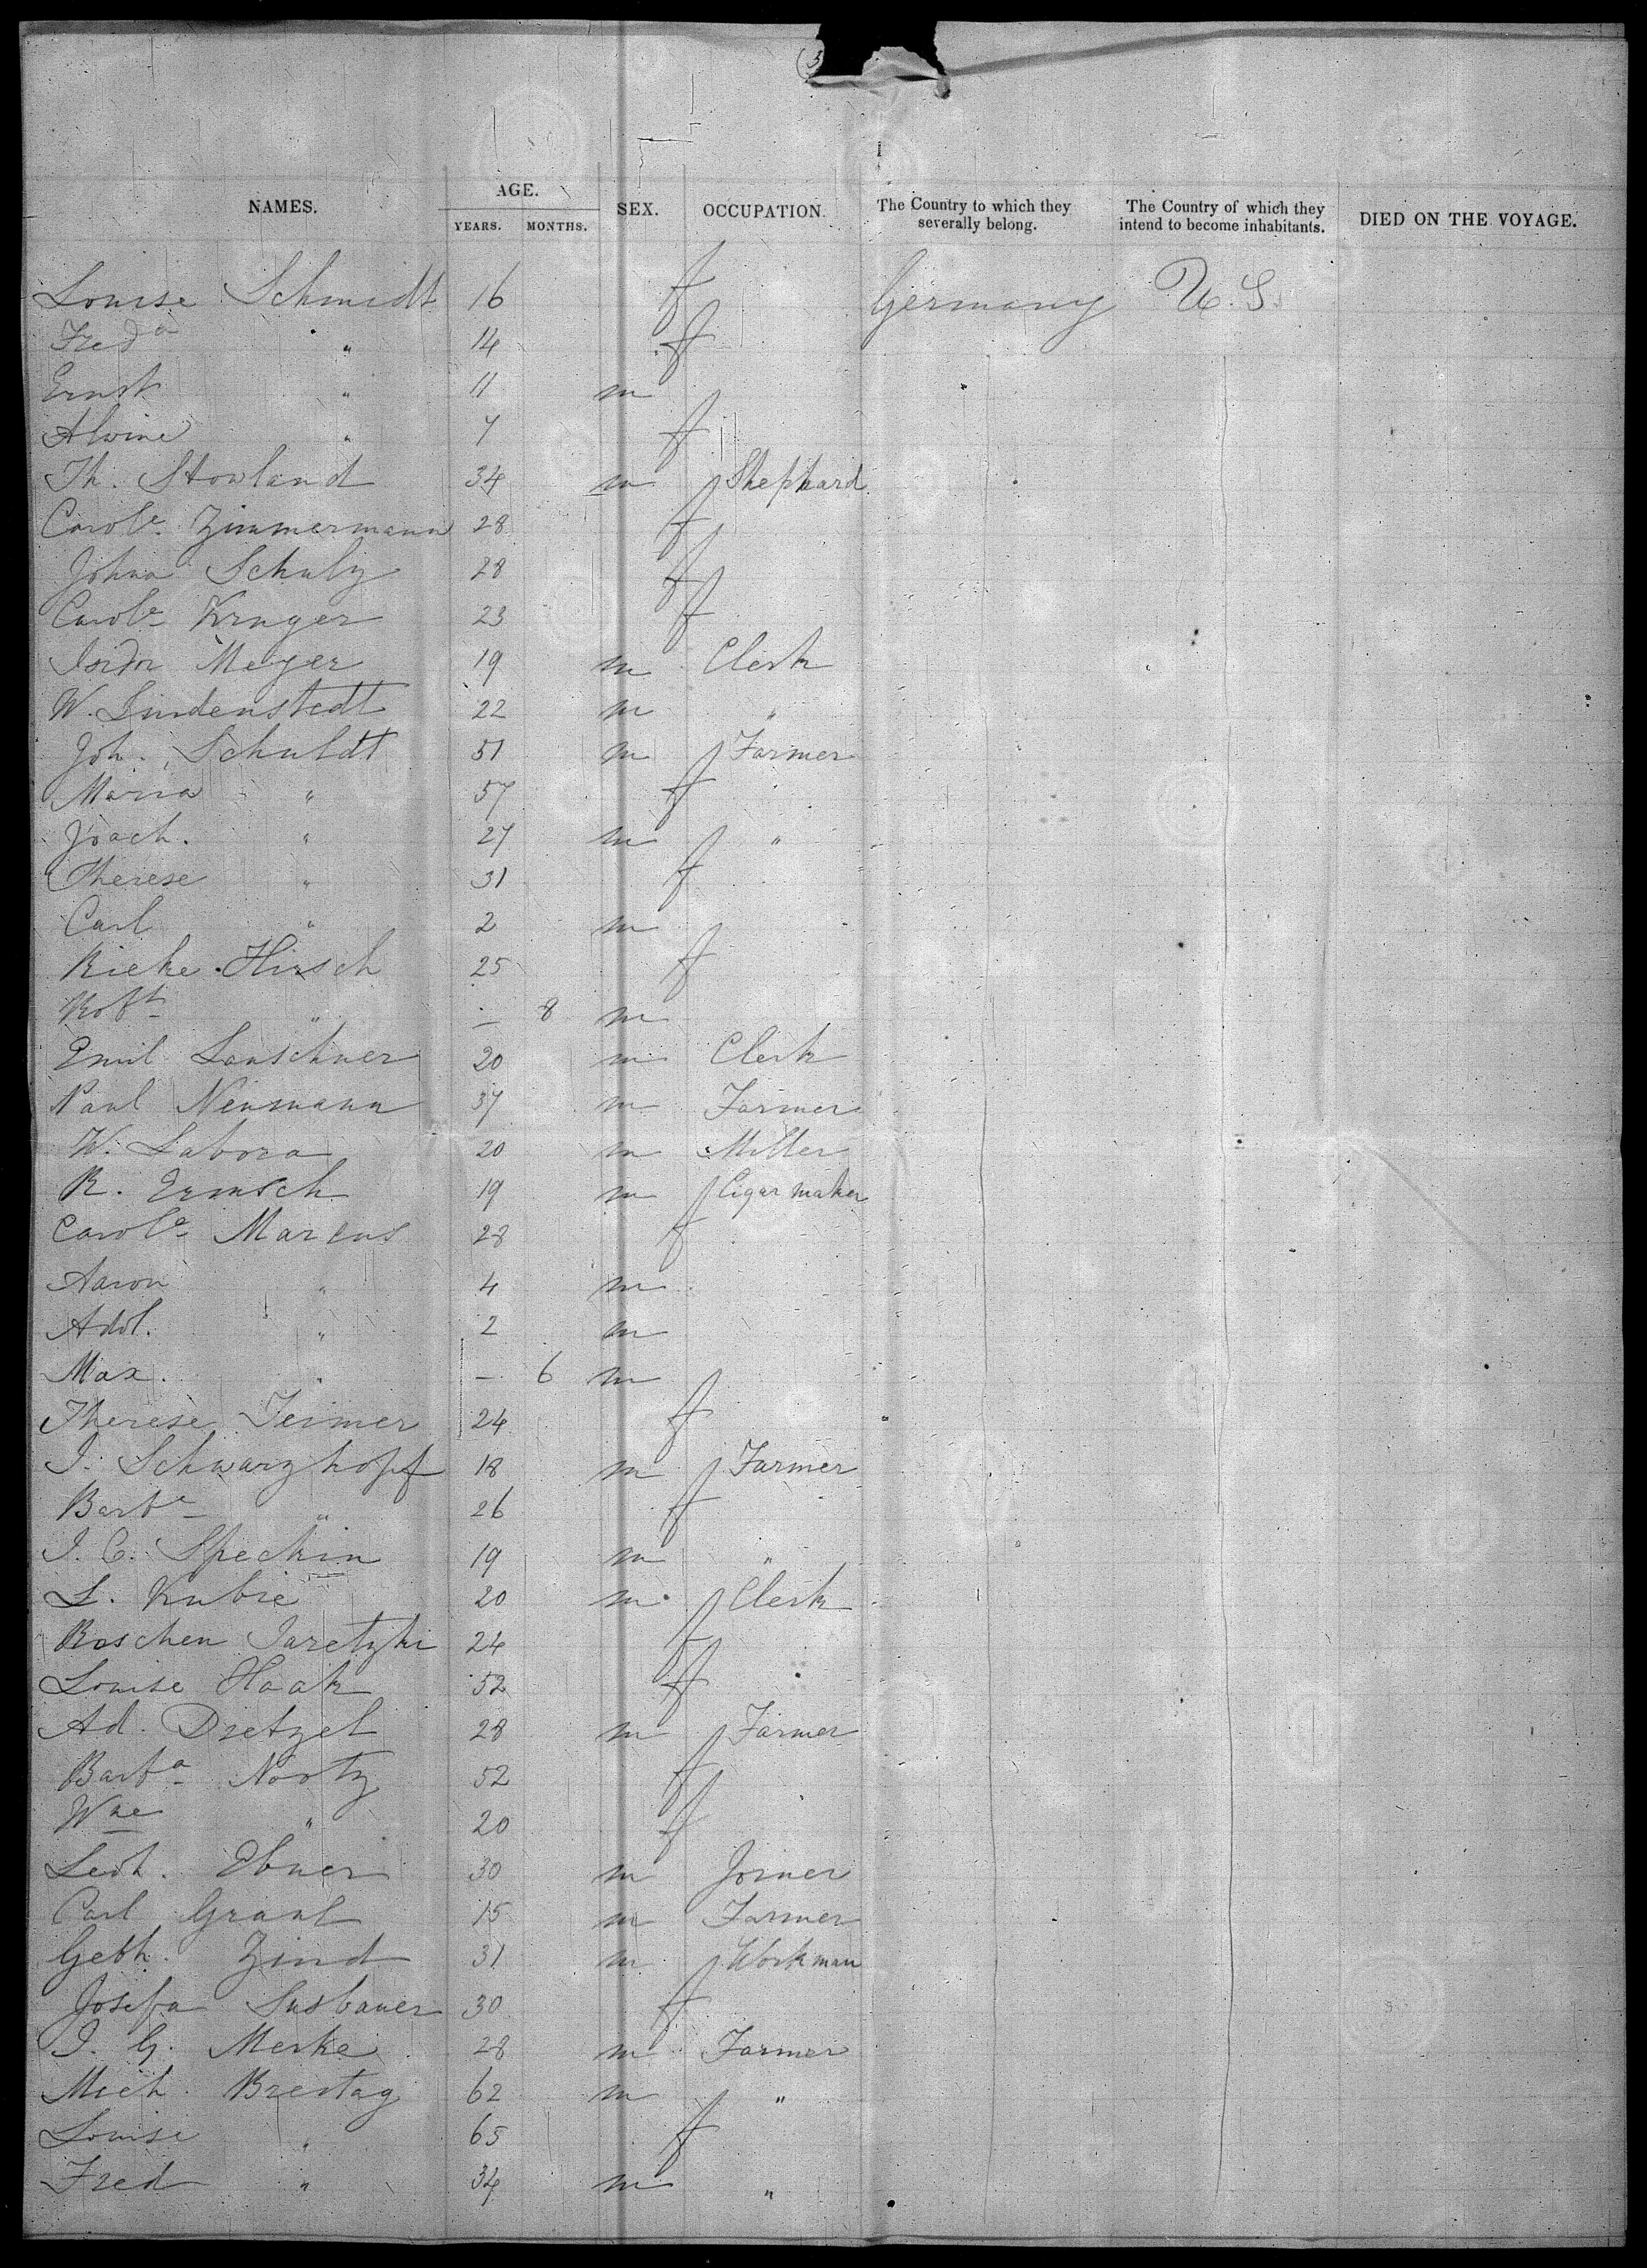 (5
NAMES. AGE. SEX. OCCUPATION. The Country to which they severally belong. The Country of which they intend to become inhabitants. DIED ON THE VOYAGE.
YEARS. MONTHS.
Louise Schmidt 16 f Germany U.S.
Freda " 14 f
Ernst " 11 m
Alvine " 7 f
Th. Stowland 34 m Shephard
Carole Zimmermann 28 f
Johna Schulz 28 f
Carole Kruger 23 f
Isidr Meyer 19 m Clerk
W. Lindenstedt 22 m "
Joh. Schuldt 51 m Farmer
Maria " 57 f
Joach. " 27 m "
Therese " 31 f
Carl " 2 m
Rieke Hirsch 25 f
Robt " – 8 m
Emil Lauschner 20 m Clerk
Paul Neumann 37 m Farmer
W. Labora 20 m Miller
R. Ermsch 19 m Cigar maker
Carole Marcus 28 f
Aaron " 4 m
Adol. " 2 m
Max. " – 6 m
Therese Teimer 24 f
J. Schwarzkopf 18 m Farmer
Barba " 26 f
J. C. Speckin 19 m "
L. Kubie 20 m Clerk
Roschen Jaretzki 24 f
Louise Haak 52 f
Ad. Dretzel 28 m Farmer
Barba Nootz 52 f
Wne " 20 f
Leoh. Ebner 30 m Joiner
Carl Graul 15 m Farmer
Gebh. Zind 31 m Workman
Josefa Susbauer 30 f
J. G. Merke 28 m Farmer
Mich. Brestag 62 m "
Louise " 65 f
Fred " 34 m "